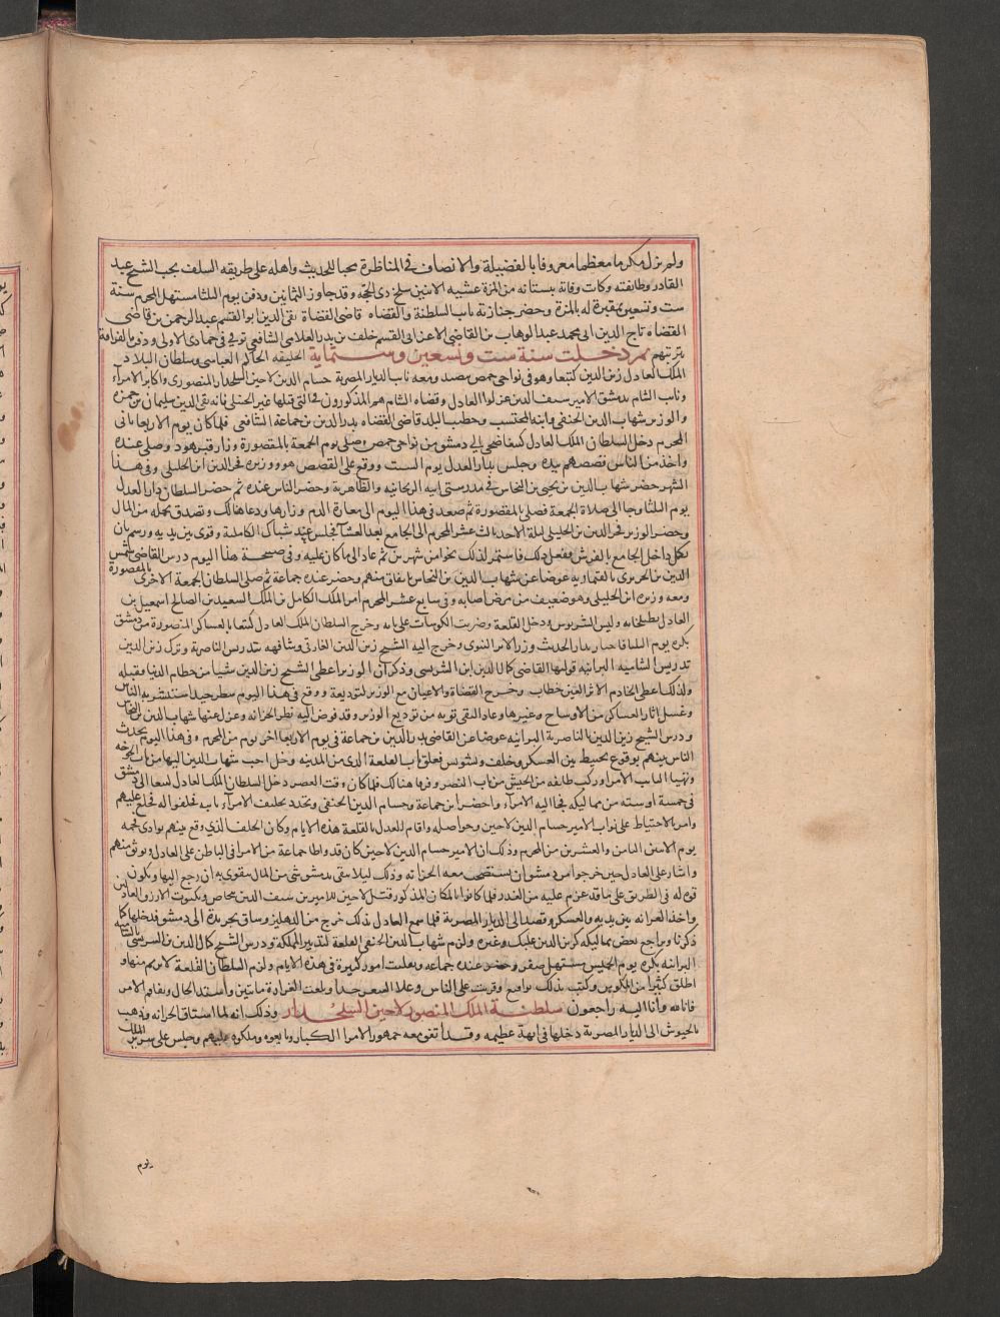 ولم يزل مكرما معظما معروفا بالفضيلة والانصاف في المناظرة محبا للحديث واهله على طريقه السلف يحب الشيخ عبد
القادر وطايفته وكانت وفاته ببستانه من المزة عشيه الاثنين سلخ ذي الحجة وقد جاوز الثمانين ودفن يوم الثلثا مستهل المحرم سنة
ست وتسعين بمقبرة له بالمزة وحضر جنازته نايب السلطنة والقضاه قاضي القضاة تقي الدين ابو القسم عبد الرحمن بن قاضي
القضاة تاج الدين ابي محمد عبد الوهاب بن القاضي الاعز ابي القسم خلف بن بدر العلامي الشافعي توفي في جمادى الاولى ودفن بالقرافة
بتربتهم ثم دخلت سنة ست وتسعين وستماية الخليفه الحاكم العباسي وسلطان البلاد
الملك العادل زين الدين كتبغا وهو في نواحي حمص يتصيد ومعه نايب الديار المصرية حسام الدين لاجين السلحدار المنصوري واكابر الامرآء
ونايب الشام بدمشق الامير سيف الدين غرلوا العادل وقضاه الشام هم المذكورون في التي قبلها غير الحنبلي فانه تقي الدين سليمان بن حمزه
والوزير شهاب الدين الحنفي وابنه المحتسب وخطيب البلد قاضي القضاه بدر الدين بن جماعة الشافعي فلما كان يوم الاربعا ثاني
المحرم دخل السلطان الملك العادل كتبغا ضحى الي دمشق من نواحي حمص وصلى يوم الجمعة بالمقصورة وزار قبر هود وصلى عنده
واخذ من الناس قصصهم بيده وجلس بدار العدل يوم السبت ووقع على القصص هو ووزيره فخر الدين ابن الخليلي وفي هذا
الشهر حضر شهاب الدين بن يحيى بن النحاس في مدرستي ابيه الريحانيه والظاهرية وحضر الناس عنده ثم حضر السلطان دار العدل
يوم الثلثا وجا الي صلاة الجمعة فصلى بالمقصورة ثم صعد في هذا اليوم الى مغارة الدم وزارها ودعا هنالك وتصدق بجمله من المال
وحضر الوزير فخر الدين بن الخليلي ليلة الاحد ثالث عشر المحرم الى الجامع بعد العشآ فجلس عند شباك الكاملية وقري بين يديه ورسم بان
يكمل داخل الجامع بالفرش ففعل ذلك فاستمر لذلك نحوا من شهرين ثم عاد الى ما كان عليه وفي صبيحة هذا اليوم درس القاضي شمس
الدين بن الحريري بالقيمازيه عوضا عن شهاب الدين بن النحاس باتفاق منهم وحضر عنده جماعة ثم صلى السلطان الجمعة الاخرى بالمقصورة
ومعه وزيره ابن الخليلي وهو ضعيف من مرض اصابه وفي سابع عشر المحرم امر الملك الكامل بن الملك السعيد بن الصالح اسمعيل بن
العادل بطبلخانه ولبس الشربوس ودخل القلعة وضربت الكوسات على بابه وخرج السلطان الملك العادل كتبغا بالعساكر المنصورة من دمشق
بكره يوم الثلثا فاجتاز بدار الحديث وزار الاثر النبوي وخرج اليه الشيخ زين الدين الفارقي وشافهه بتدريس الناصرية وترك زين الدين
تدريس الشاميه البرانيه فوليها القاضي كمال الدين ابن الشريشي وذكر ان الوزير اعطى الشيخ زين الدين شيا من حطام الدنيا وقبله
ولذلك اعطى الخادم الاثر المعين خطاب وخرج القضاة والاعيان مع الوزير لتوديعة ووقع في هذا اليوم مطر جيد استبشر به الناس
وغسل اثار العساكر من الاوساخ وغيرها وعاد التقي توبه من توديع الوزير وقد فوض اليه نظر الخزانه وعزل عنها شهاب الدين بن النحاس
ودرس الشيخ زين الدين بالناصرية البرانيه عوضا عن القاضي بدر الدين بن جماعة في يوم الاربعا اخر يوم من المحرم وفي هذا اليوم تحدث
الناس بينهم بوقوع تخبيط بين العسكر وخلف وتشويش فغلق باب القلعة الذي من المدينه ودخل صاحب شهاب الدين اليها من باب الخوخه
وتهيا النايب الامرآ وركب طايفه من الجيش من باب النصر وفرها هنالك فلما كان وقت العصر دخل السلطان الملك العادل كتبغا الى دمشق
في خمسة او سته من مماليكه فجا اليه الامرآء واحضر ابن جماعة وحسام الدين الحنفي وتجدد تحليف الامرآء ثانيه فحلفوا له فخلع عليهم
وامر بالاحتياط على نواب الامير حسام الدين لاجين وحواصله واقام العادل بالقلعة هذه الايام وكان الخلف الذي وقع بينهم بوادي فحمه
يوم الاثنين الثامن والعشرين من المحرم وذلك ان الامير حسام الدين لاجين كان قد واطا جماعة من الامرا في الباطن على العادل وتوثق منهم
واشار على العادل حين خرجوا من دمشق ان يستصحب معه الخزانه وذلك ليلا يبقى بدمشق شي من المال يتقوى به ان رجع اليها ويكون
قوه له في الطريق على ما قد عزم عليه من الغدر فلما كانوا بالمكان المذكور قتل لاجين للامير سيف الدين بتخاص وبكتوت الازرق العادليين
واخذ الخزانه بين يديه والعسكر وقصد الى الديار المصرية فلما سمع العادل ذلك خرج من الدهليز وساق بجريدة الى دمشق فدخلها كما
ذكرنا وتراجع بعض مماليكه كزين الدين غلبك وغيره ولزم شهاب الدين الحنفي القلعة لتدبير المملكة ودرس الشيخ كمال الدين بن الشريشي بالشاميه
البرانيه بكره يوم الخميس مستهل صفر وحضر عنده جماعه وتقلبت امور كثيرة في هذه الايام ولزم السلطان القلعة لا يخرج منها و
اطلق كثيرا من المكوس وكتب بذلك تواقيع وقريت على الناس وغلا السعر جدا وبلغت الغرارة مايتين واشتد الحال وتفاقم الامر
فانا لله وانا اليه راجعون سلطنة الملك المنصور لاجين السلحدار وذلك انه لما استاق الخزانه وذهب
بالجيوش الى الديار المصرية دخلها في ابهة عظيمه وقد اتفق معه جمهور الامرا الكبار وبايعوه وملكوه عليهم وجلس على سرير الملك
يوم